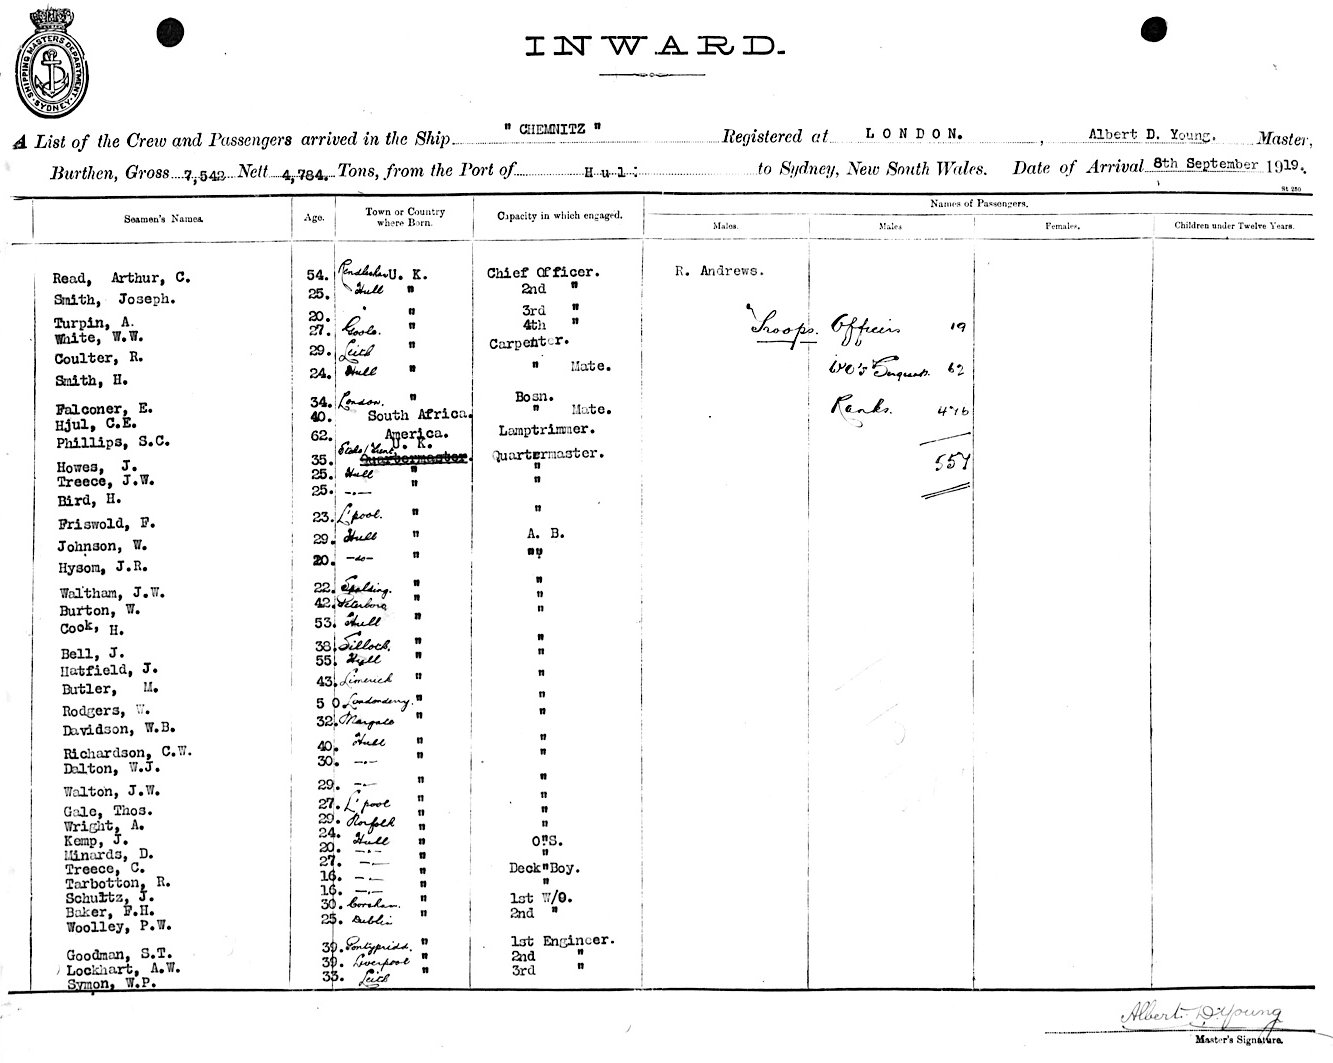 SHIPPING MASTERS DEPARTMENT
SYDNEY
INWARD.
A List of the Crew and Passengers arrived in the Ship " CHEMNITZ " Registered at LONDON. , Albert D. Young. Master,
Burthen, Gross 7,542 Nett 4,784. Tons, from the Port of Hul to Sydney, New South Wales. Date of Arrival 8th September 1919.
St 250
Seamen's Names. Age. Town or Country where Born. Capacity in which engaged. Names of Passengers.
Males. Males Females. Children under Twelve Years.
Read, Arthur, C. 54. U. K. Chief Officer. R. Andrews.
Smith, Joseph. 25. Hull " 2nd "
Turpin, A. 20. " " 3rd "
White, W.W. 27. Goole. " 4th " Troops. Officers 19
Coulter, R. 29. Leith " Carpenter.
Smith, H. 24. Hull " " Mate. WO's Sergeants. 62
Falconer, E. 34. London. " Bosn.
Hjul, C.E. 40. South Africa. " Mate. Ranks. 476
Phillips, S.C. 62. America. Lamptrimmer.
Howes, J. 35. U. K. Quartermaster. Quartermaster. 557
Treece, J.W. 25. Hull " "
Bird, H. 25. —.— " "
Friswold, F. 23. L'pool. " "
Johnson, W. 29. Hull " A. B.
Hysom, J.R. 20. —do— " "
Waltham, J.W. 22. Spalding. " "
Burton, W. 42. Peterboro " "
Cook, H. 53. Hull " "
Bell, J. 38. Silloth. " "
Hatfield, J. 55. Hull " "
Butler, M. 43. Limerick " "
Rodgers, W. 50. Londonderry. " "
Davidson, W.B. 32. Margate " "
Richardson, C.W. 40. Hull " "
Dalton, W.J. 30. —.— " "
Walton, J.W. 29. —.— " "
Gale, Thos. 27. L'pool " "
Wright, A. 29. Norfolk " "
Kemp, J. 24. Hull " "
Minards, D. 20. —.— " O.S.
Treece, C. 27. —.— " "
Tarbotton, R. 16. —.— " Deck Boy.
Schultz, J. 16. —.— " "
Baker, F.H. 30. Corsham. " 1st W/O.
Woolley, P.W. 25. Dublin " 2nd "
Goodman, S.T. 39. Pontypridd. " 1st Engineer.
Lockhart, A.W. 39. Liverpool " 2nd "
Symon, W.P. 33. Leith " 3rd "
Albert D. Young
Master's Signature.